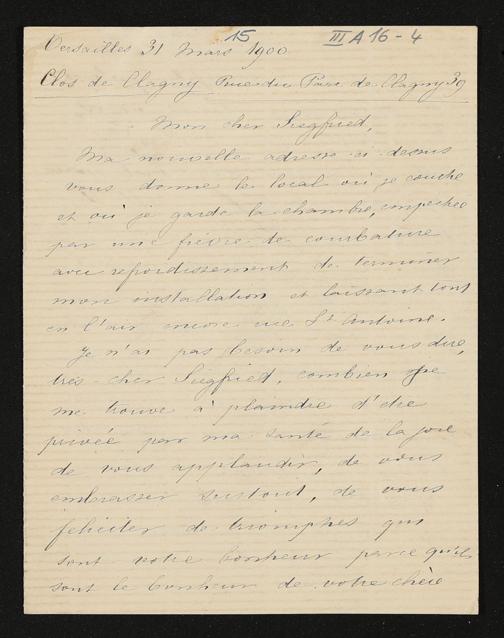 15 III A 16 - 4
Versailles 31 Mars 1900
Clos de Clagny Rue du Parc de Clagny 39
Mon cher Siegfried,
Ma nouvelle adresse ci-dessus
vous donne le local où je couche
et où je garde la chambre, empêchée
par une fièvre de courbature
avec refroidissement de terminer
mon installation et laissant tout
en l'air encore rue St Antoine.
Je n'ai pas besoin de vous dire,
très cher Siegfried, combien je
me trouve à plaindre d'être
privée par ma santé de la joie
de vous applaudir, de vous
embrasser surtout, de vous
féliciter de triomphes qui
sont votre bonheur parce qu'ils
sont le bonheur de votre chère